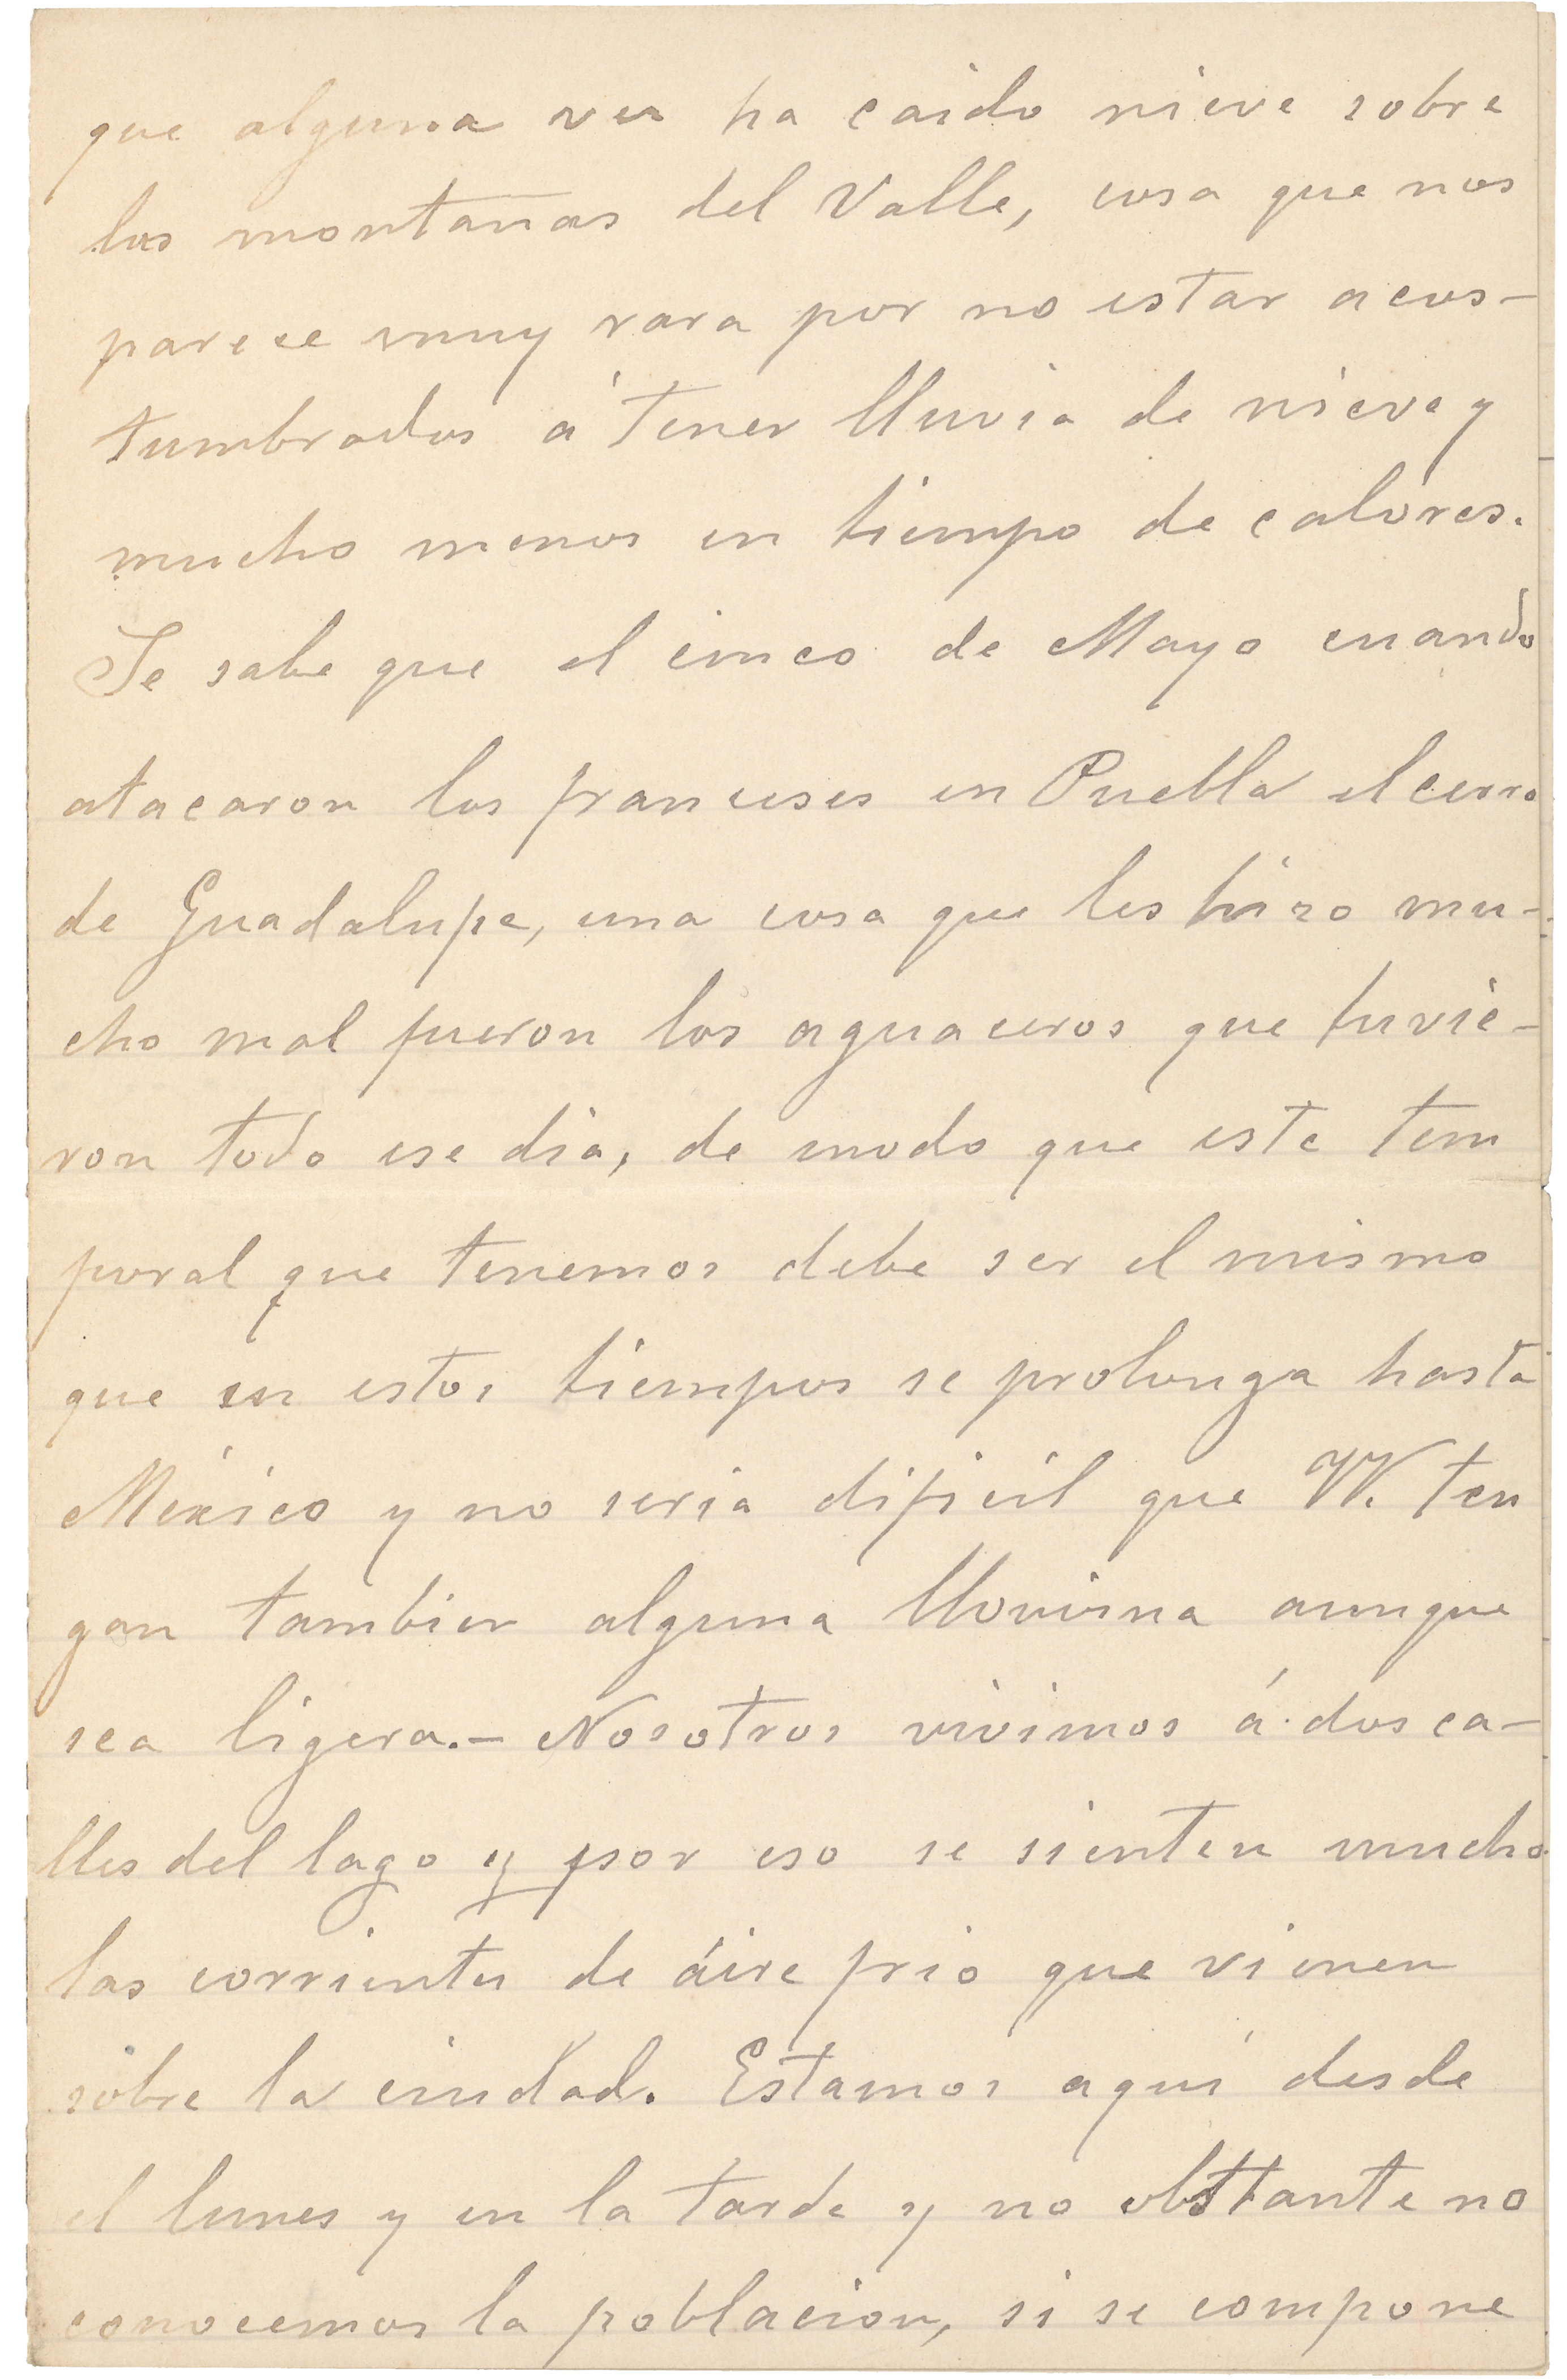 que alguna vez ha caido nieve sobre
las montañas del Valle, cosa que nos
parece muy rara por no estar acos-
tumbrados á tener lluvia de nieve y
mucho menos en tiempo de calores.
Se sabe que el cinco de Mayo cuando
atacaron los franceses en Puebla el cerro
de Guadalupe, una cosa que les hizo mu-
cho mal fueron los aguaceros que tuvie-
ron todo ese dia, de modo que este tem
poral que tenemos debe ser el mismo
que en estos tiempos se prolonga hasta
México y no seria dificil que VV. ten
gan tambien alguna llovisna aunque
sea ligera.- Nosotros vivimos á dos ca-
lles del lago y por eso se sienten mucho
las corrientes de áire frio que vienen
sobre la ciudad. Estamos aquí desde
el lunes y en la tarde y no obsttante no
conocemos la poblacion, si se compone